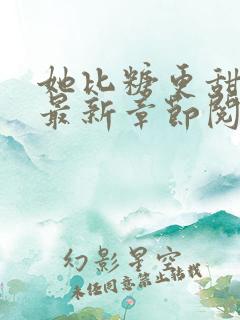 她比糖更甜
最新章节阅
幻影星空
未经同意禁止转载